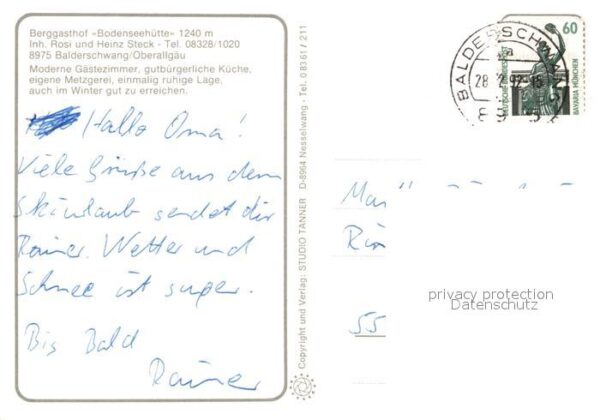 Berggasthof »Bodenseehütte« 1240 m
Inh. Rosi und Heinz Steck - Tel. 08328/1020
8975 Balderschwang/Oberallgäu
Moderne Gästezimmer, gutbürgerliche Küche,
eigene Metzgerei, einmalig ruhige Lage,
auch im Winter gut zu erreichen.
Hallo Oma!
Viele Grüße aus dem
Skiurlaub sendet dir
Rainer. Wetter und
Schnee ist super.
Bis Bald
Rainer
Copyright und Verlag: STUDIO TANNER D-8964 Nesselwang - Tel. 08361/211
BALDERSCHWANG
a
28.2.92-15
60
DEUTSCHE BUNDESPOST
BAVARIA MÜNCHEN
55
privacy protection
Datenschutz